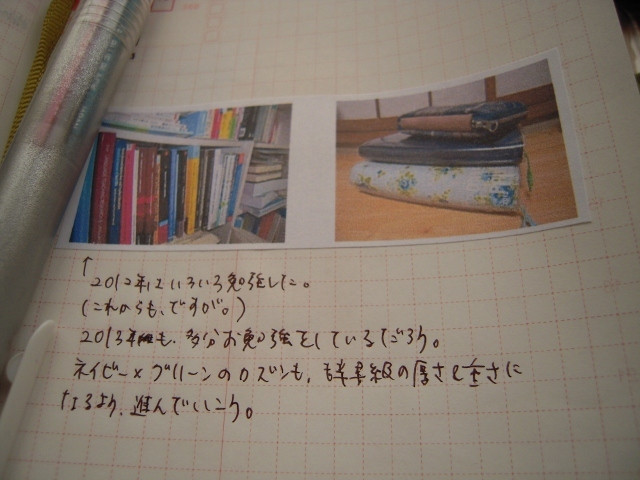 ↑2012年はいろいろ勉強した。
(これからも、ですが。)
2013年も、多分お勉強をしているだろう。
ネイビー×グリーンのカズンも、辞書級の厚さと重さに
なるよう、進んでいこう。